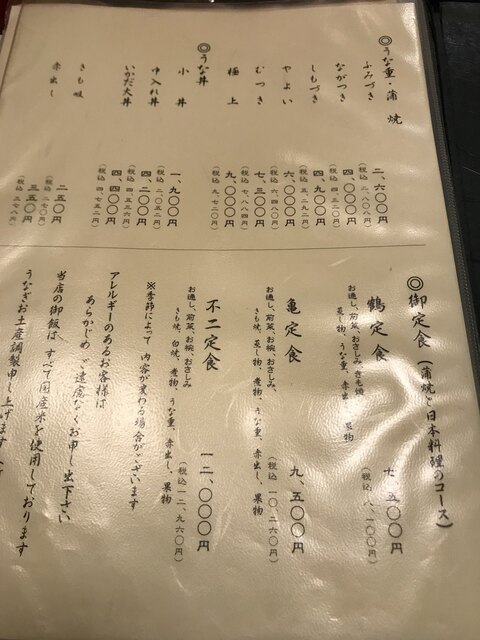 ◎うな重・蒲焼
ふみづき 二、六〇〇円
(税込 二、八〇八円)
ながつき 四、〇〇〇円
(税込 四、三二〇円)
しもづき 四、九〇〇円
(税込 五、二九二円)
やよい 六、〇〇〇円
(税込 六、四八〇円)
むつき 七、三〇〇円
(税込 七、八八四円)
極上 九、〇〇〇円
(税込 九、七二〇円)
◎うな丼
小丼 一、九〇〇円
(税込 二、〇五二円)
中入れ丼 四、二〇〇円
(税込 四、五三六円)
いかだ大丼 四、四〇〇円
(税込 四、七五二円)
きも吸 二五〇円
(税込 二七〇円)
赤出し 三五〇円
(税込 三七八円)
◎御定食(蒲焼と日本料理のコース)
鶴定食 七、五〇〇円
(税込 八、一〇〇円)
お通し、前菜、おさしみ、きも焼
蒸し物、うな重、赤出し、果物
亀定食 九、五〇〇円
(税込 一〇、二六〇円)
お通し、前菜、お椀、おさしみ、
きも焼、蒸し物、煮物、うな重、赤出し、果物
不二定食 一二、〇〇〇円
(税込 一二、九六〇円)
お通し、前菜、お椀、おさしみ、
きも焼、白焼、煮物、うな重、赤出し、果物
※季節によって内容が変わる場合がございます
アレルギーのあるお客様は
あらかじめご遠慮なくお申し出下さい
当店の御飯は、すべて国産米を使用しております
うなぎお土産調製申し上げます